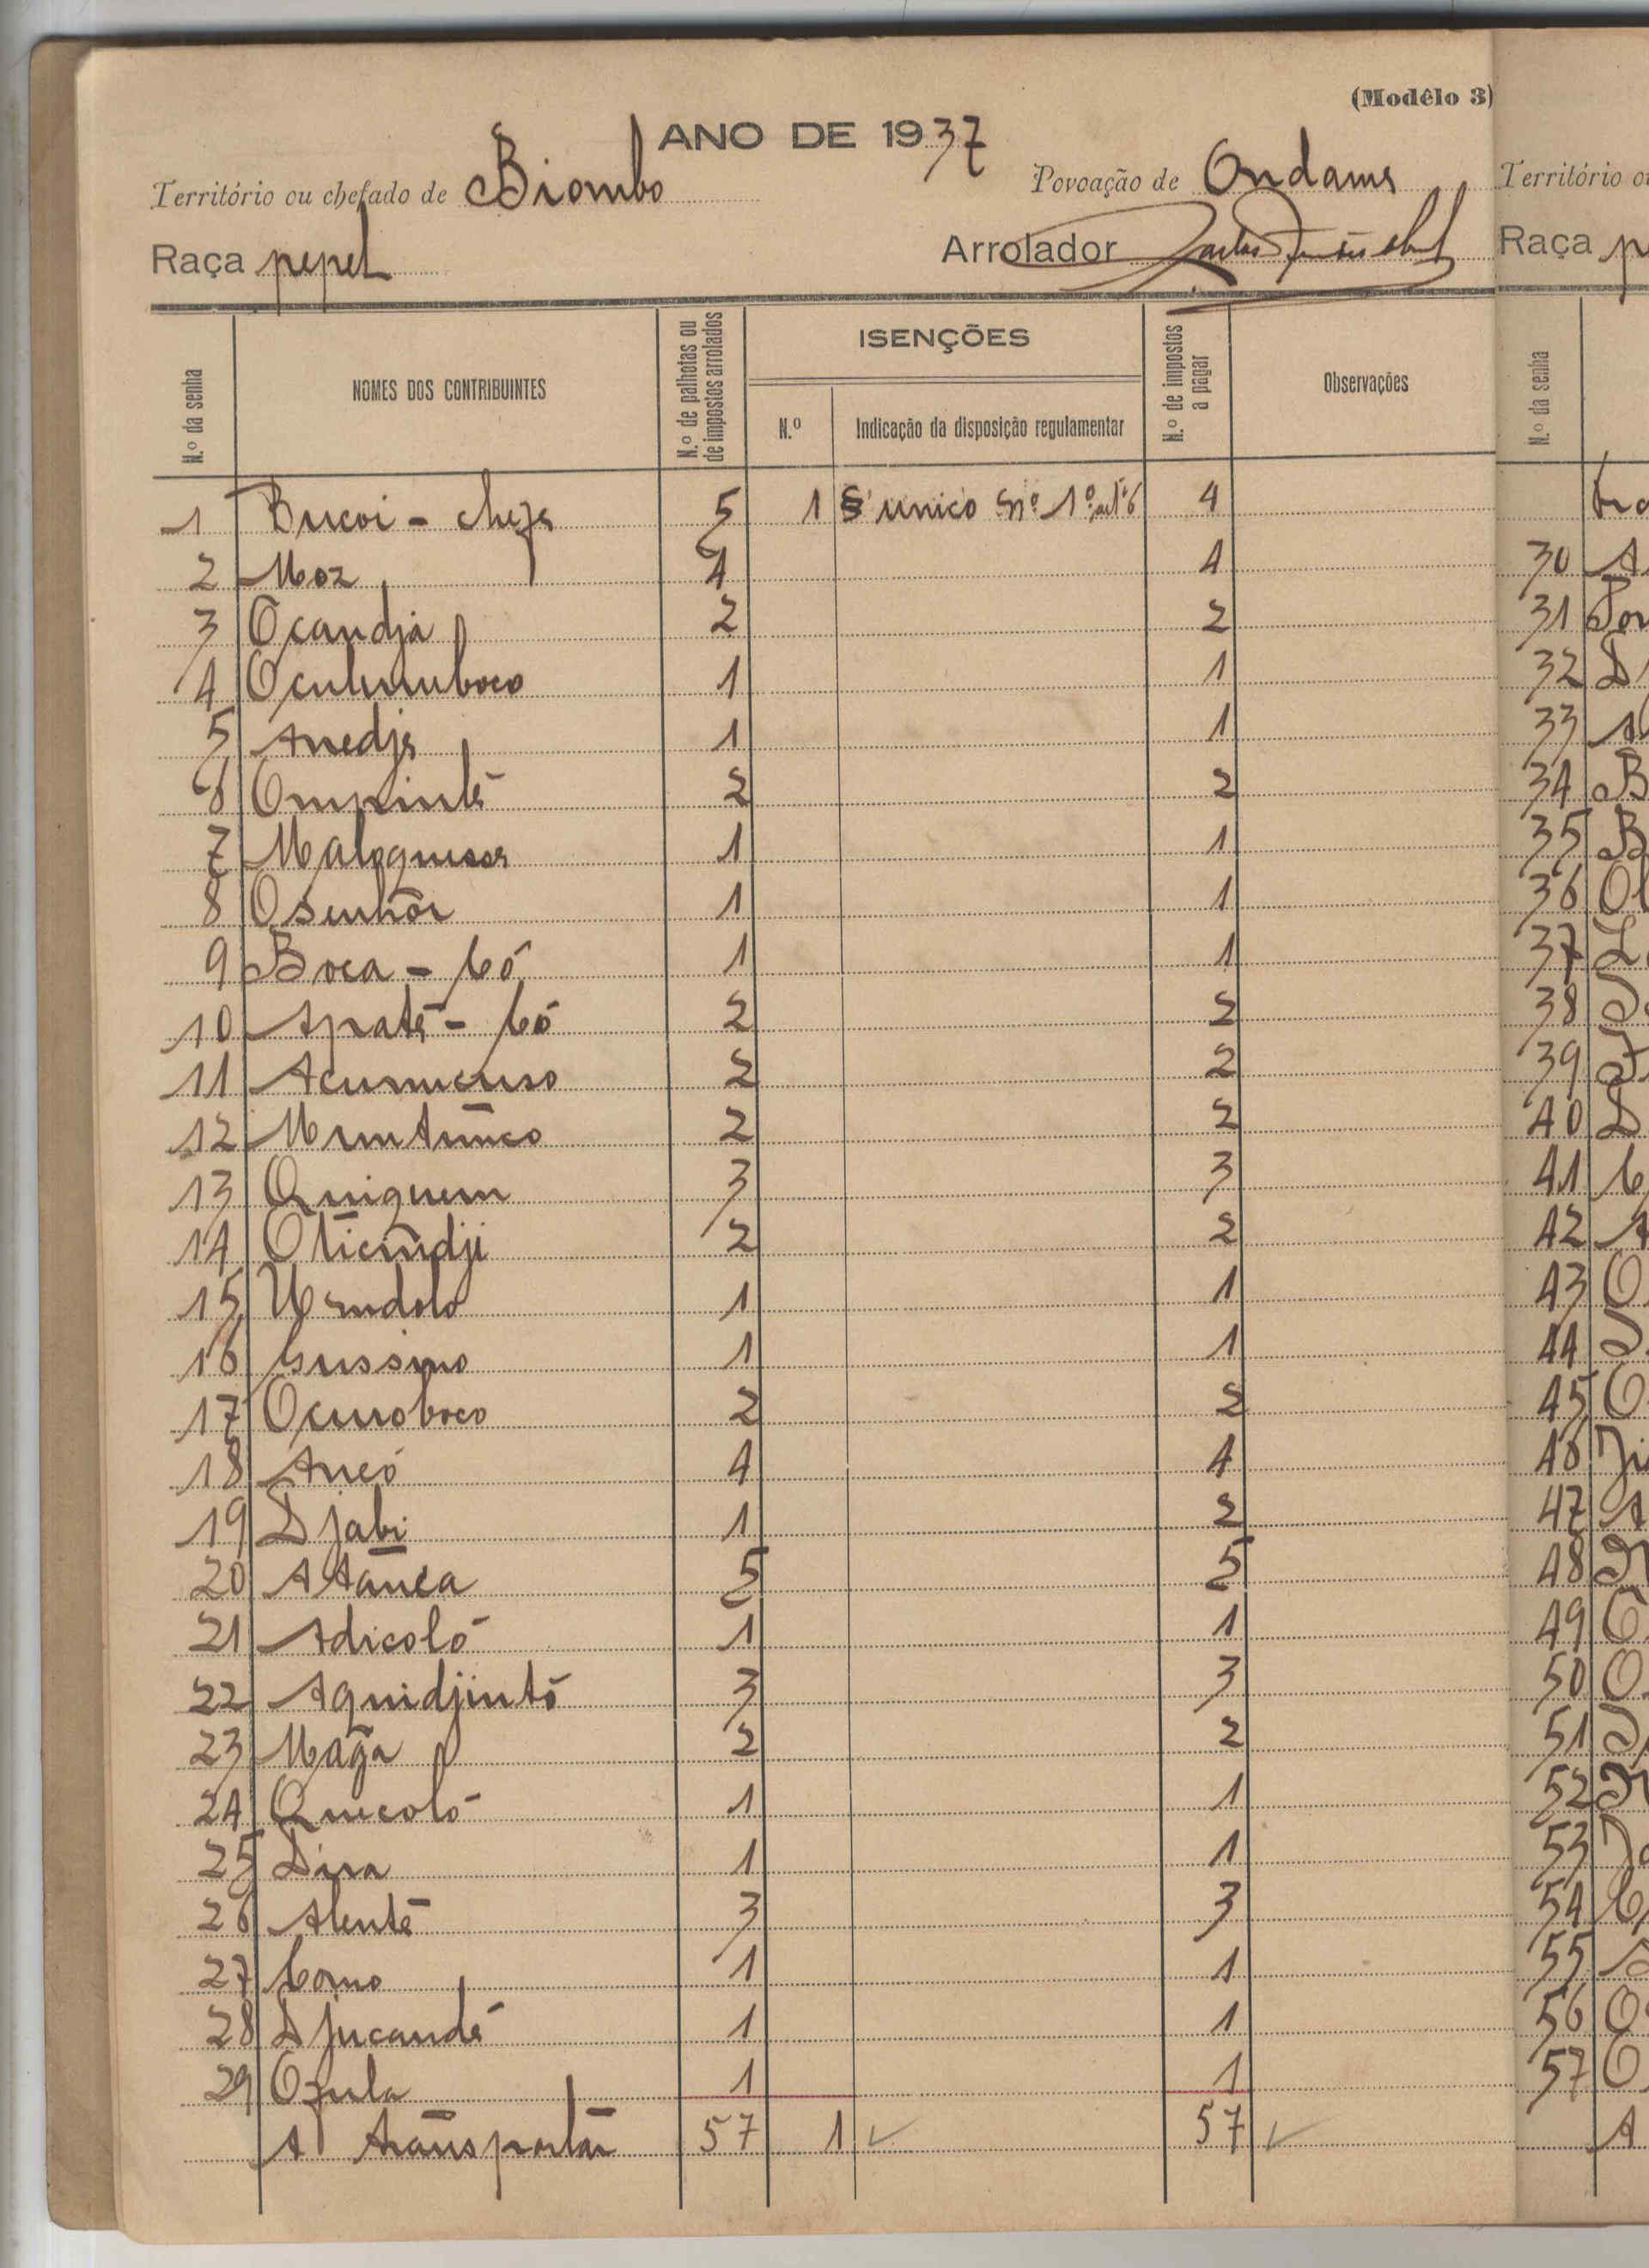 (Modêlo 3)
ANO DE 1937
Território ou chefado de Biombo Povoação de Ondame
Raça pepel Arrolador
N.º da senha
NOMES DOS CONTRIBUINTES
N.º de palhotas ou de impostos arrolados
ISENÇÕES
N.º
Indicação da disposição regulamentar
N.º de impostos a pagar
Observações
1 Bucoi - chefe 5 1 § unico nº 1º artº 6 4
2 Moz 4 4
3 Ocandja 2 2
4 1 1
5 Anedje 1 1
6 Ompinté 2 2
7 1 1
8 Osenhôr 1 1
9 Boca - Có 1 1
10 Apaté - Có 2 2
11 2 2
12 2 2
13 Quiguem 3 3
14 2 2
15 1 1
16 Cussimo 1 1
17 Ocuroboco 2 2
18 Aucó 4 4
19 Djabi 1 2
20 Atanca 5 5
21 Adicoló 1 1
22 Aquidjintó 3 3
23 Maga 2 2
24 Quecoló 1 1
25 1 1
26 Alenté 3 3
27 Como 1 1
28 Djucandé 1 1
29 Opula 1 1
A transportar 57 1 57
Território
Raça
N.º da senha
30
31
32
33
34
35
36
37
38
39
40
41
42
43
44
45
46
47
48
49
50
51
52
53
54
55
56
57
A